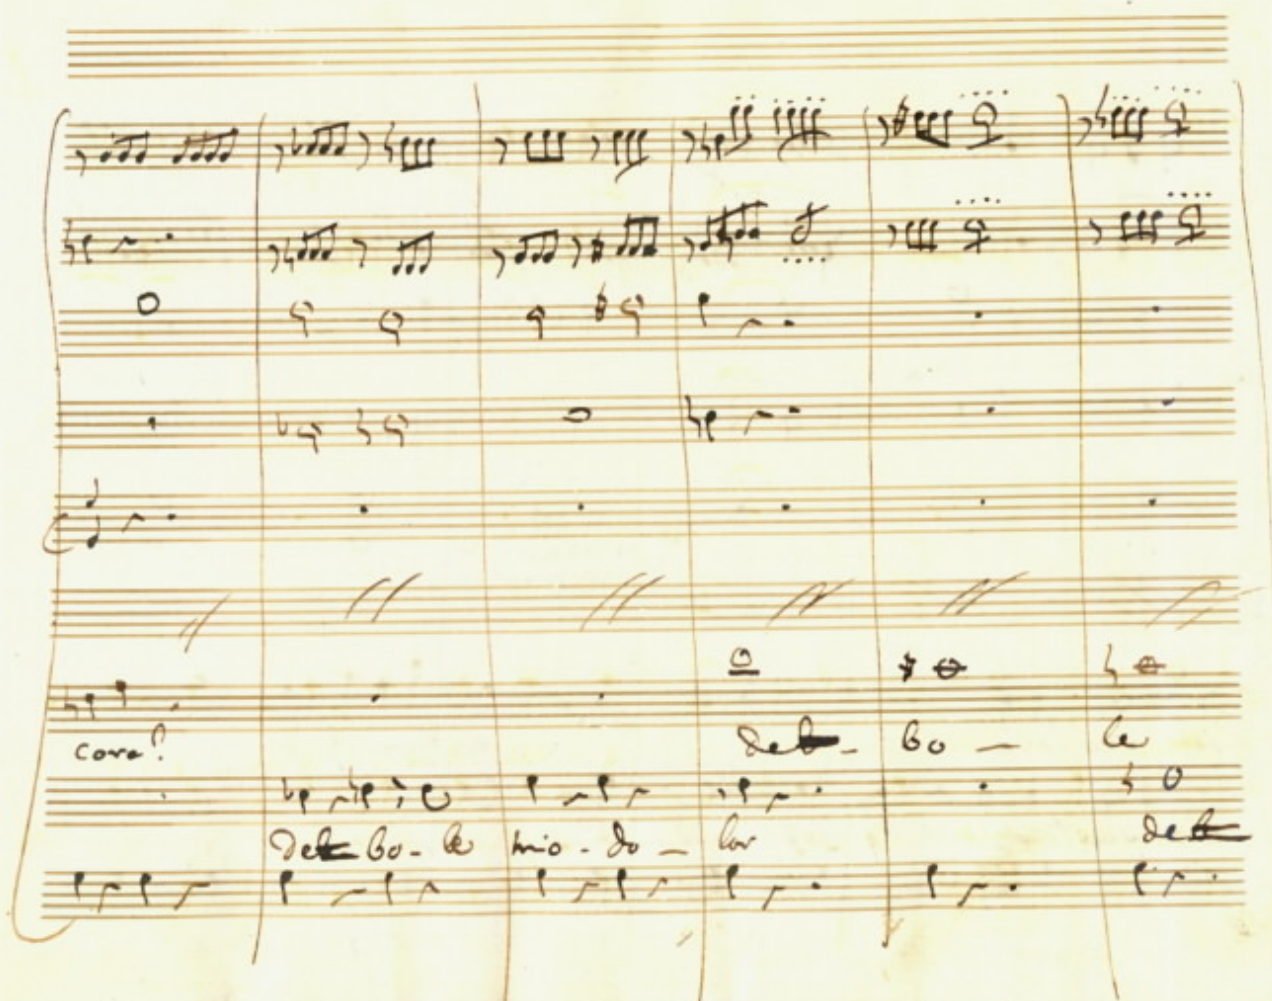 core? de - bo - le
De bo - le mio - do - lor de